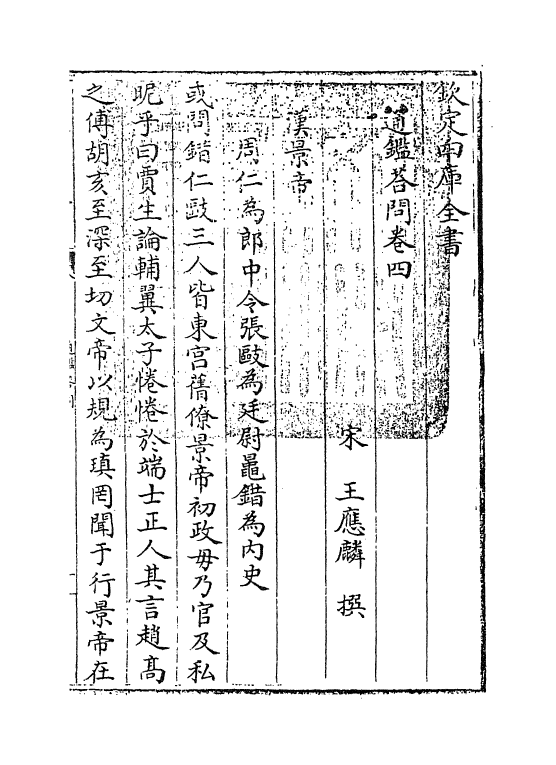 欽定四庫全書
通鑑荅問卷四
宋 王應麟 撰
漢景帝
周仁為郎中令張歐為廷尉鼂錯為内史
或問錯仁歐三人皆東宫舊僚景帝初政毋乃官及私
昵乎曰賈生論輔翼太子惓惓於端士正人其言趙髙
之傅胡亥至深至切文帝以規為瑱罔聞于行景帝在